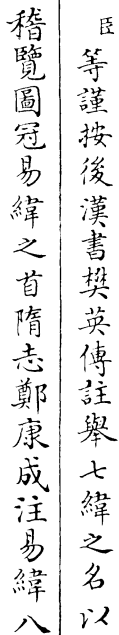 臣等謹按後漢書樊英傳註舉七緯之名以
稽覽圖冠易緯之首隋志鄭康成注易緯八